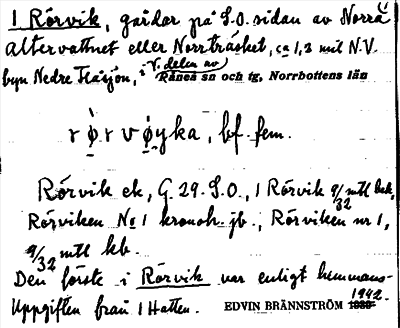 1 Rörvik, gårdar på S.O. sidan av Norra
Altervattnet eller Norrträsket, ca 1,3 mil N.V.
byn Nedre Flåsjön, i V. delen av Råneå sn och tg, Norrbottens län
rø̀rvǿyka, bf. fem.
Rörvik ek, G. 29. S.O., 1 Rörvik 9/32 mtl
Rörviken No 1 kronoh. jb., Rörviken nr 1,
9/32 mtl kb.
Den förste i Rörvik var enligt hemmans-
uppgiften från 1 Hatten. EDVIN BRÄNNSTRÖM 1942.